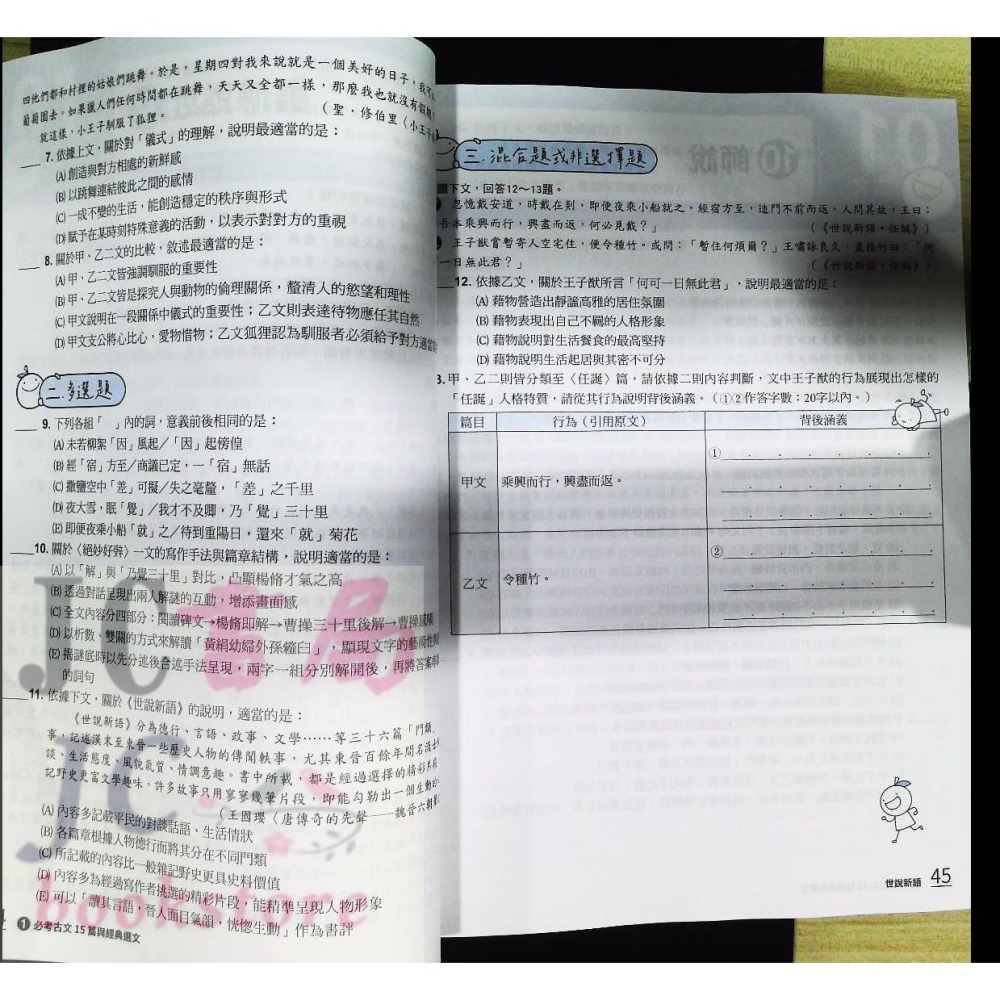 四他們都和村裡的姑娘們跳舞。於是，星期四對我來說就是一個美好的日子，我可
葡萄園去。如果獵人們任何時間都在跳舞，天天又全都一樣，那麼我也就沒有假期
就這樣，小王子馴服了狐狸。
（聖．修伯里〈小王子
7. 依據上文，關於對「儀式」的理解，說明最適當的是：
(A) 創造與對方相處的新鮮感
(B) 以跳舞連結彼此之間的感情
(C) 一成不變的生活，能創造穩定的秩序與形式
(D) 賦予在某時刻特殊意義的活動，以表示對對方的重視
8. 關於甲、乙二文的比較，敘述最適當的是：
(A) 甲、乙二文皆強調馴服的重要性
(B) 甲、乙二文皆是探究人與動物的倫理關係，釐清人的慾望和理性
(C) 甲文說明在一段關係中儀式的重要性；乙文則表達待物應任其自然
(D) 甲文支公將心比心，愛物惜物；乙文狐狸認為馴服者必須給予對方適當
二.多選題
9. 下列各組「　」內的詞，意義前後相同的是：
(A) 未若柳絮「因」風起／「因」起徬徨
(B) 經「宿」方至／商議已定，一「宿」無話
(C) 撒鹽空中「差」可擬／失之毫釐，「差」之千里
(D) 夜大雪，眠「覺」／我才不及卿，乃「覺」三十里
(E) 即便夜乘小船「就」之／待到重陽日，還來「就」菊花
10. 關於〈絕妙好辭〉一文的寫作手法與篇章結構，說明適當的是：
(A) 以「解」與「乃覺三十里」對比，凸顯楊脩才氣之高
(B) 透過對話呈現出兩人解謎的互動，增添畫面感
(C) 全文內容分四部分：閱讀碑文→楊脩即解→曹操三十里後解→曹操
(D) 以析數、雙關的方式來解讀「黃絹幼婦外孫韲臼」，顯現文字的藝術性
(E) 揭謎底時以先分述後合述手法呈現，兩字一組分別解開後，再將答案
的詞句
11. 依據下文，關於《世說新語》的說明，適當的是：
《世說新語》分為德行、言語、政事、文學⋯⋯等三十六篇「門類」
事，記述漢末至東晉一些歷史人物的傳聞軼事，尤其東晉百餘年間名流
談、生活態度、風貌氣質、情調意趣。書中所載，都是經過選擇的精彩片段
記野史更富文學趣味。許多故事只用寥寥幾筆片段，即能勾勒出一個生動
（王國瓔〈唐傳奇的先聲——魏晉六朝
(A) 內容多記載平民的對談話語、生活情狀
(B) 各篇章根據人物德行而將其分在不同門類
(C) 所記載的內容比一般雜記野史更具史料價值
(D) 內容多為經過寫作者挑選的精彩片段，能精準呈現人物形象
(E) 可以「讀其言語，晉人面目氣韻，恍惚生動」作為書評
1 必考古文 15 篇與經典選文
10 師說
三.混合題或非選擇題
讀下文，回答12～13題。
忽憶戴安道，時戴在剡，即便夜乘小船就之。經宿方至，造門不前而返。人問其故，王曰：
吾本乘興而行，興盡而返，何必見戴？」
（《世說新語．任誕》）
王子猷嘗暫寄人空宅住，便令種竹。或問：「暫住何煩爾？」王嘯詠良久，直指竹曰：「何
一日無此君？」
（《世說新語．任誕》）
12. 依據乙文，關於王子猷所言「何可一日無此君」，說明最適當的是：
(A) 藉物營造出靜謐高雅的居住氛圍
(B) 藉物表現出自己不羈的人格形象
(C) 藉物說明對生活餐食的最高堅持
(D) 藉物說明生活起居與其密不可分
3. 甲、乙二則皆分類至〈任誕〉篇，請依據二則內容判斷，文中王子猷的行為展現出怎樣的
「任誕」人格特質，請從其行為說明背後涵義。（①②作答字數：20字以內。）
篇目　行為（引用原文）　背後涵義
甲文　乘興而行，興盡而返。　①
乙文　令種竹。　②
世說新語　45
JC書局
JC
bookstore